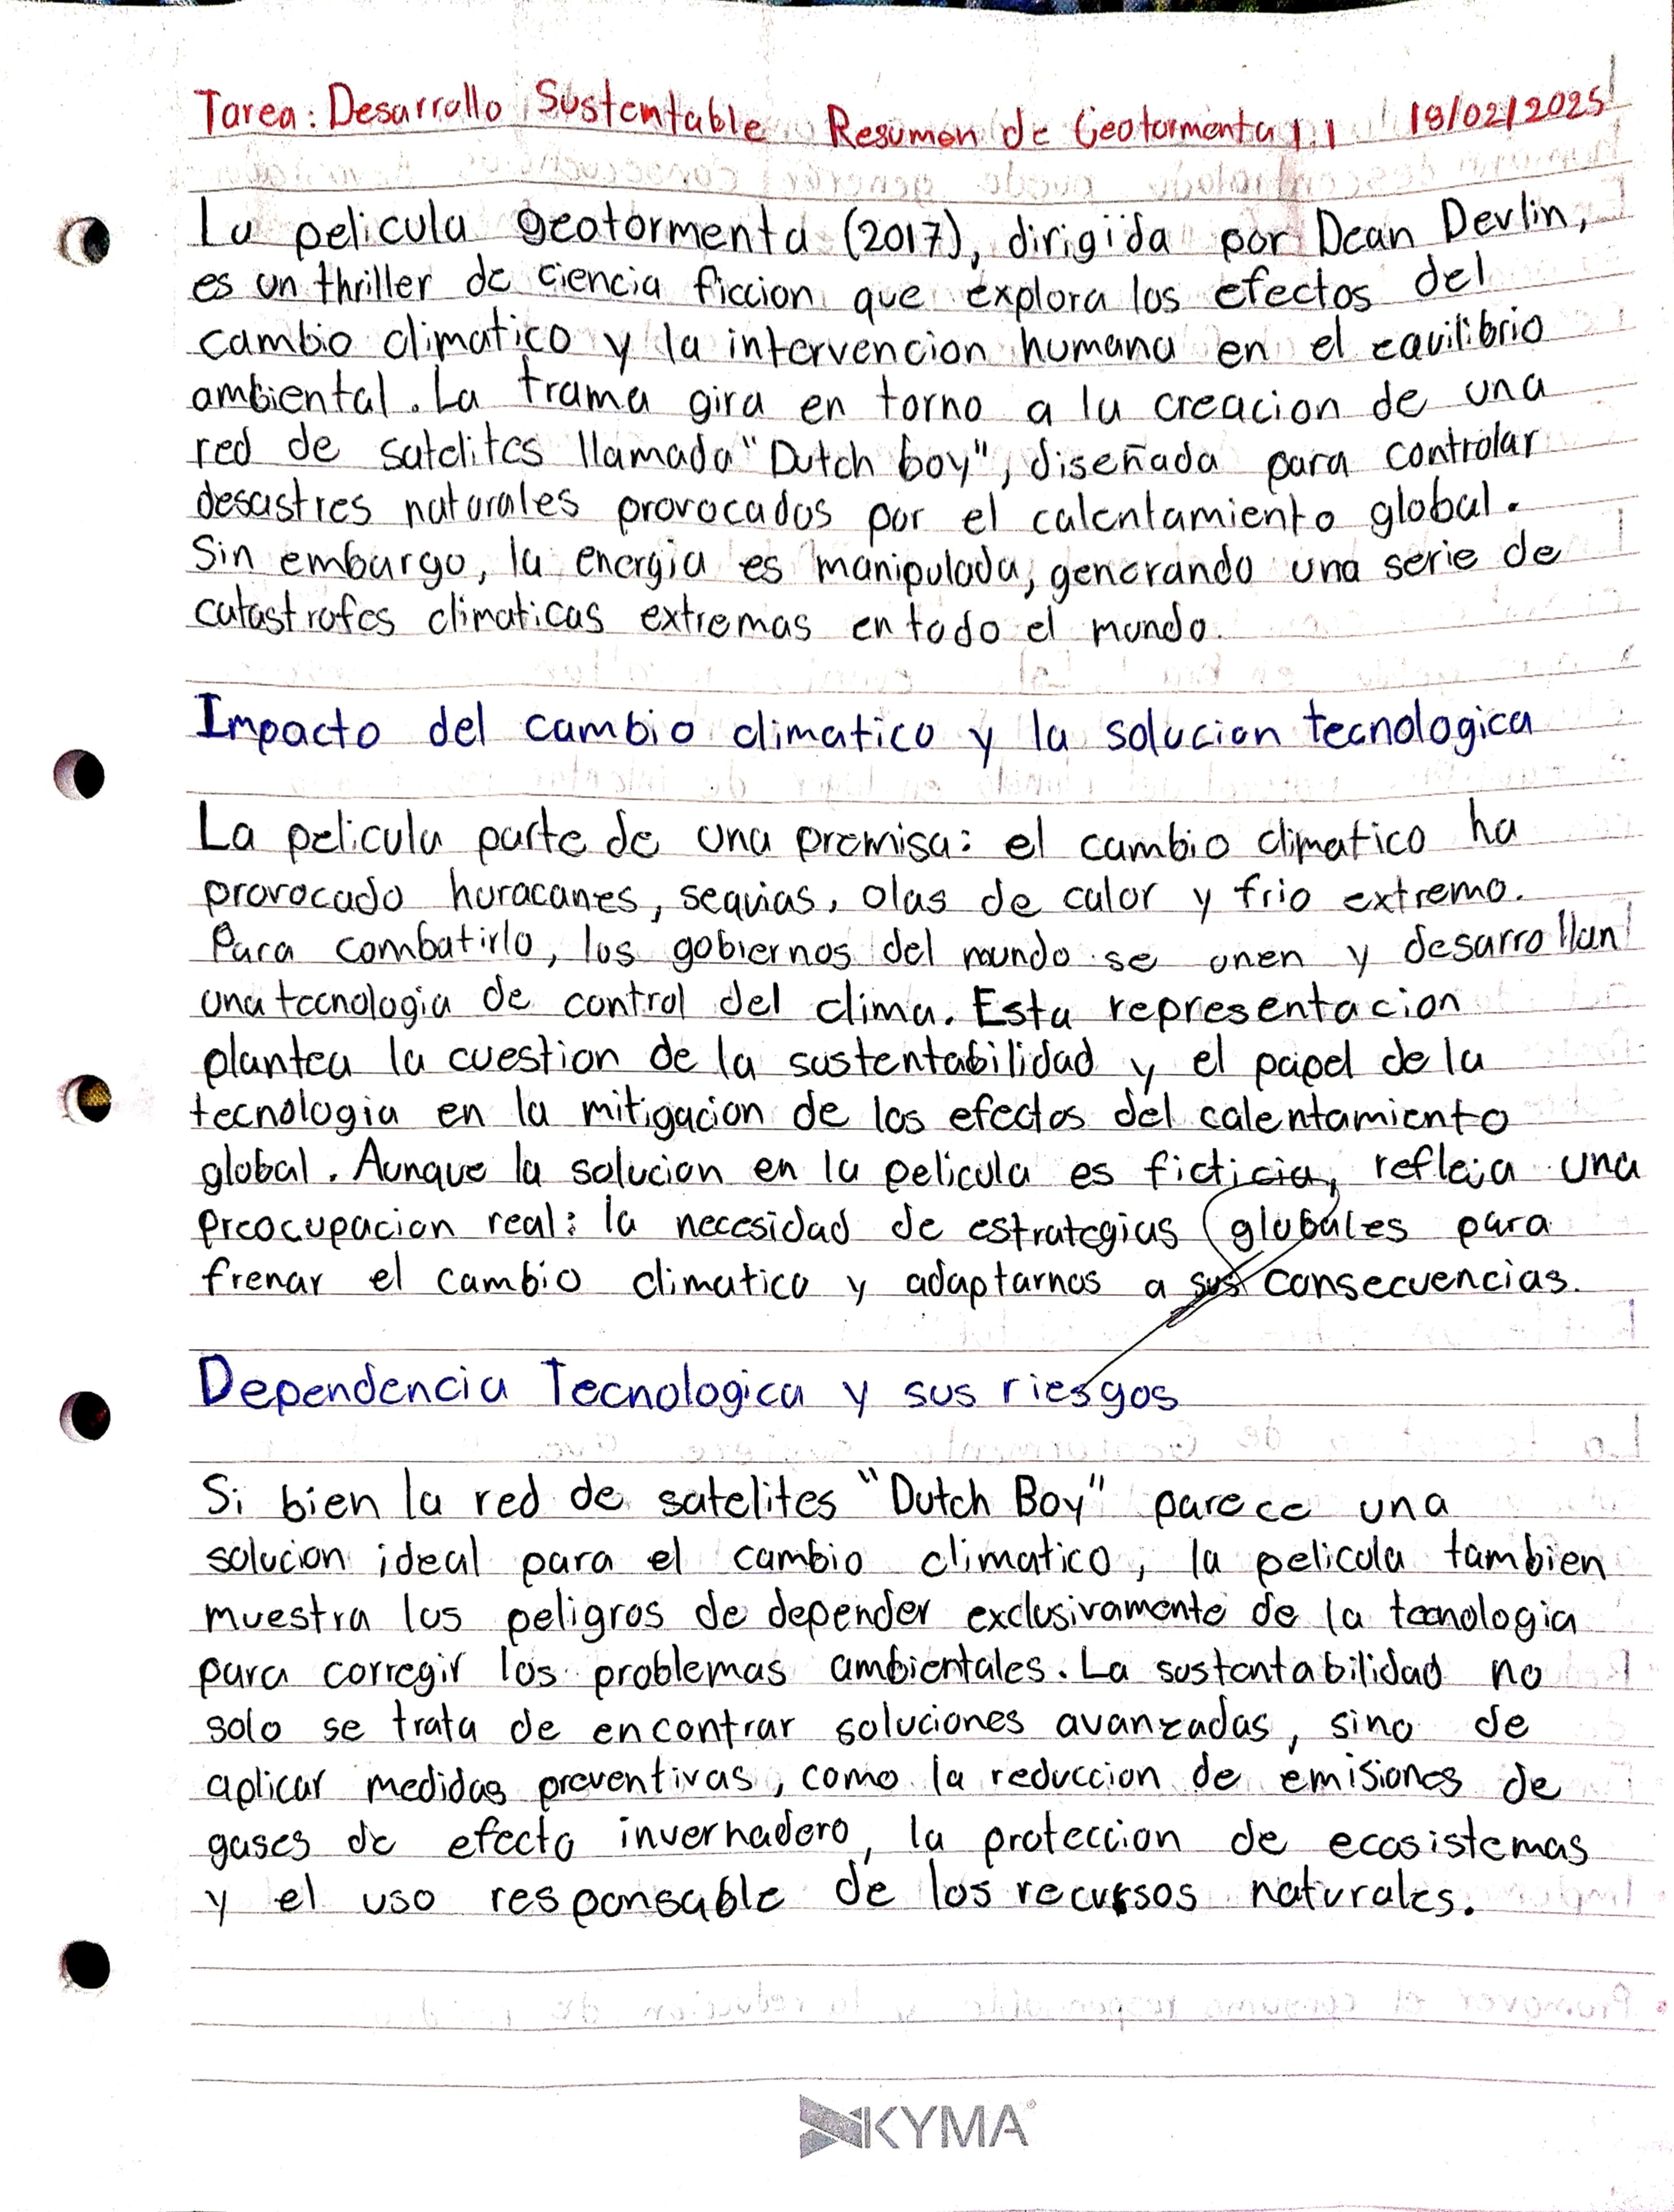 Tarea: Desarrollo Sustentable Resumen de Geotormenta 1.1 19/02/2025
La pelicula geotormenta (2017), dirigida por Dean Devlin,
es un thriller de ciencia ficcion que explora los efectos del
cambio climatico y la intervencion humana en el equilibrio
ambiental. La trama gira en torno a la creacion de una
red de satelites llamada "Dutch boy", diseñada para controlar
desastres naturales provocados por el calentamiento global.
Sin embargo, la energia es manipulada, generando una serie de
catastrofes climaticas extremas en todo el mundo.
Impacto del cambio climatico y la solucion tecnologica
La pelicula parte de una premisa: el cambio climatico ha
provocado huracanes, sequias, olas de calor y frio extremo.
Para combatirlo, los gobiernos del mundo se unen y desarrollan
una tecnologia de control del clima. Esta representacion
plantea la cuestion de la sustentabilidad y el papel de la
tecnologia en la mitigacion de los efectos del calentamiento
global. Aunque la solucion en la pelicula es ficticia, refleja una
preocupacion real: la necesidad de estrategias globales para
frenar el cambio climatico y adaptarnos a sus consecuencias.
Dependencia Tecnologica y sus riesgos
Si bien la red de satelites "Dutch Boy" parece una
solucion ideal para el cambio climatico, la pelicula tambien
muestra los peligros de depender exclusivamente de la tecnologia
para corregir los problemas ambientales. La sustentabilidad no
solo se trata de encontrar soluciones avanzadas, sino de
aplicar medidas preventivas, como la reduccion de emisiones de
gases de efecto invernadero, la proteccion de ecosistemas
y el uso responsable de los recursos naturales.
KYMA